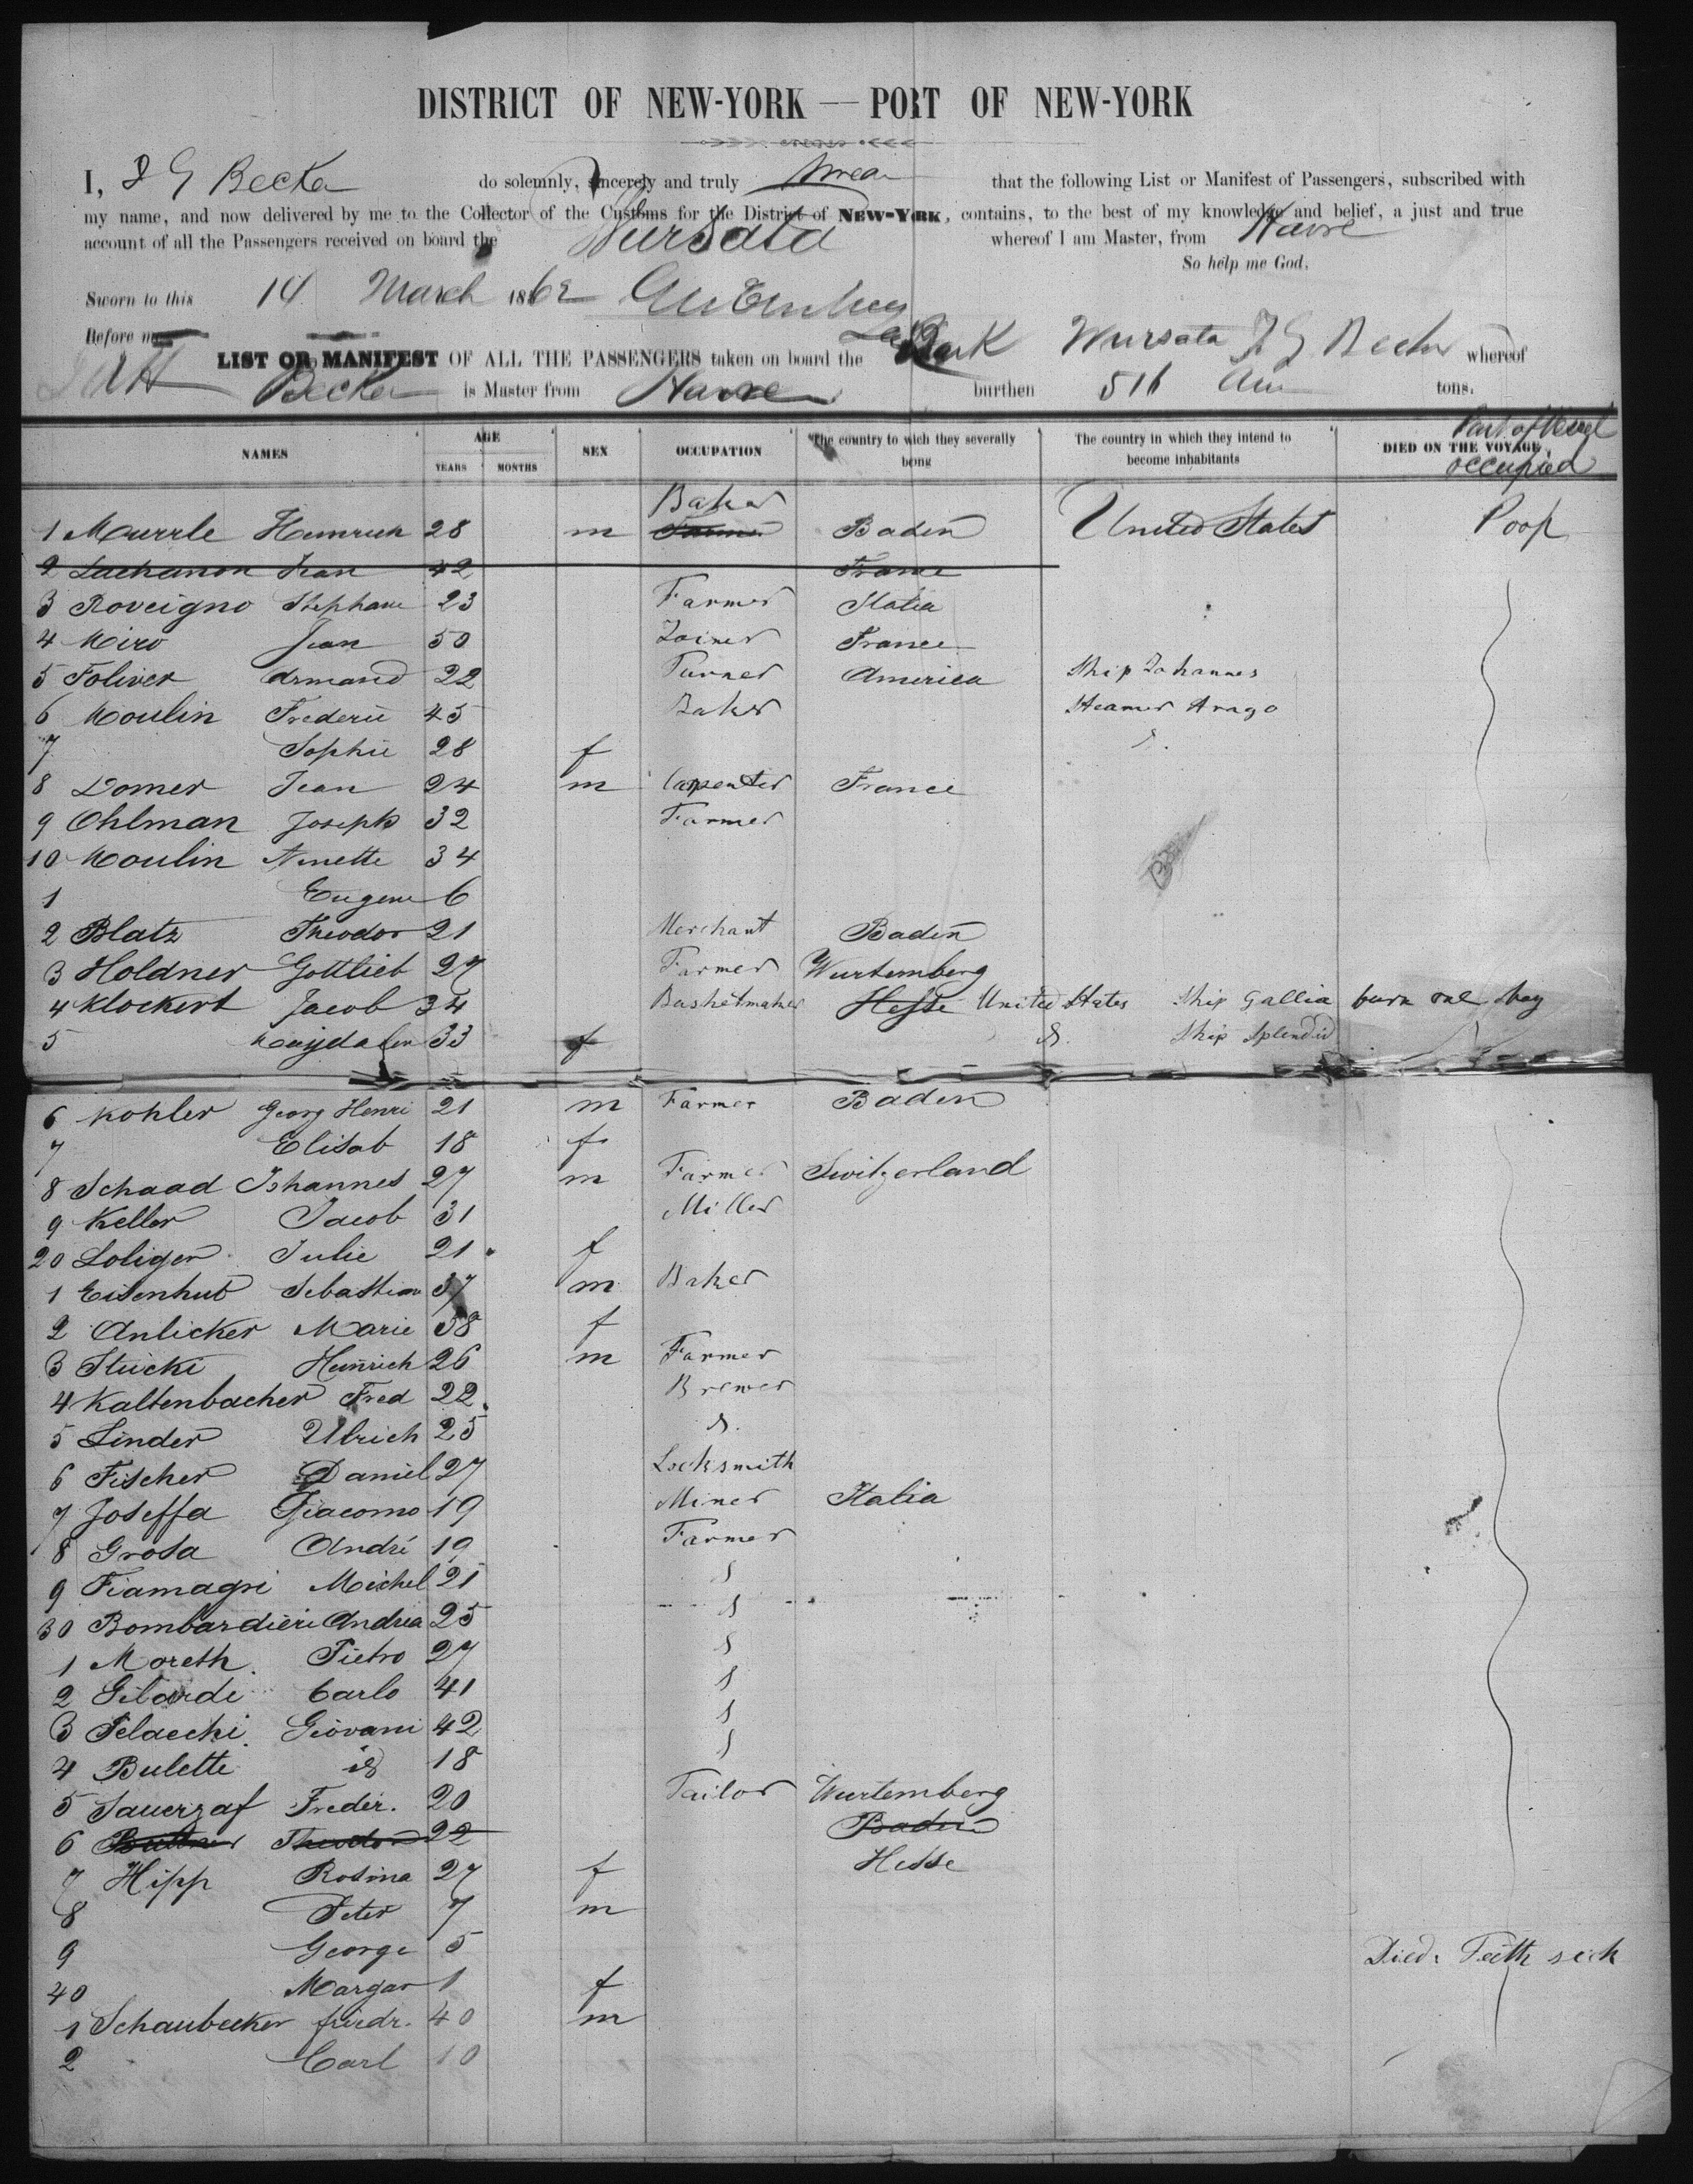 DISTRICT OF NEW-YORK — PORT OF NEW-YORK
I, J G Becker do solemnly, sincerely and truly swear that the following List or Manifest of Passengers, subscribed with
my name, and now delivered by me to the Collector of the Customs for the District of NEW-YORK, contains, to the best of my knowledge and belief, a just and true
account of all the Passengers received on board the Wursata whereof I am Master, from Havre
So help me God.
Sworn to this 14 March 1862
Before me
LIST OR MANIFEST OF ALL THE PASSENGERS taken on board the Bark Wursata J G Becker whereof
Becker is Master from Havre burthen 516 tons.
NAMES AGE YEARS MONTHS SEX OCCUPATION The country to wich they severally bong The country in which they intend to become inhabitants DIED ON THE VOYAGE, Part of Vessel occupied
Baker
1 Murrle Heinrich 28 m Farmer Baden United States Poop
2 Lachanon Jean 42 France
3 Roveigno Stephane 23 Farmer Italia
4 Miro Jean 50 Joiner France
5 Foliver Armand 22 Turner America Ship Johannes
6 Moulin Frederic 45 Baker Steamer Arago
7 Sophie 28 f
8 Domer Jean 24 m Carpenter France
9 Ohlman Joseph 32 Farmer
10 Moulin Ninette 34
1 Eugene 6
2 Blatz Theodor 21 Merchant Baden
3 Holdner Gottlieb 27 Farmer Wurtemberg
4 Klockert Jacob 34 Basketmaker Hesse United States Ship Gallia
5 Magdalen 33 f Ship Splendid
6 Kohler Georg Henri 21 m Farmer Baden
7 Elisab 18 f
8 Schaad Johannes 27 m Farmer Switzerland
9 Keller Jacob 31 Miller
20 Loliger Julie 21 f
1 Eisenhut Sebastian 37 m Baker
2 Anlicker Marie 38 f
3 Stucki Heinrich 26 m Farmer
4 Kaltenbacher Fred 22 Brewer
5 Linder Ulrich 25
6 Fischer Daniel 27 Locksmith
7 Joseffa Giacomo 19 Miner Italia
8 Grosa André 19 Farmer
9 Fiamagri Michel 21
30 Bombardieri Andrea 25
1 Moreth Pietro 27
2 Gilardi Carlo 41
3 Pelaechi Giovani 42
4 Bulette id 18
5 Sauerzaf Freder. 20 Tailor Wurtemberg
6 Theodor 22 Baden
7 Hipp Rosina 27 f Hesse
8 Peter 7 m
9 George 5 Died. Teeth sick
40 Margar 1 f
1 Schaubecker friedr. 40 m
2 Carl 10